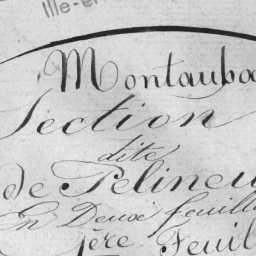 Ille-et
Montauba
Section
dite
de Pelineu
En Deux feuill
1ère Feuil